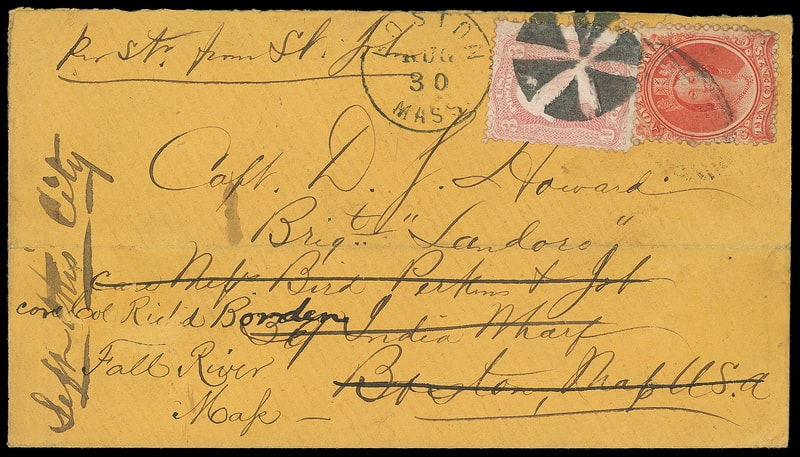 Per Str from St. John
BOSTON
AUG
30
MASS
Capt. D. J. Howard
Brigt. "Sandoro"
care Mess Bird Perkins & Job
39 India Wharf
Boston, Mass U.S.A
care Col Richd Borden
Fall River
Mass
Left this City